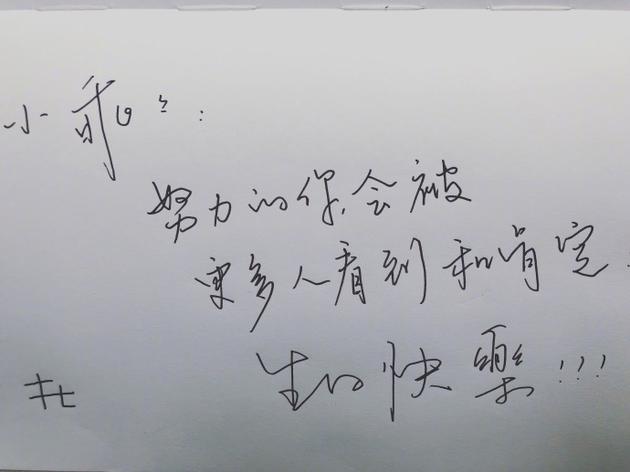 小乖〻:
努力的你,会被
更多人看到和肯定.
生日快樂!!!